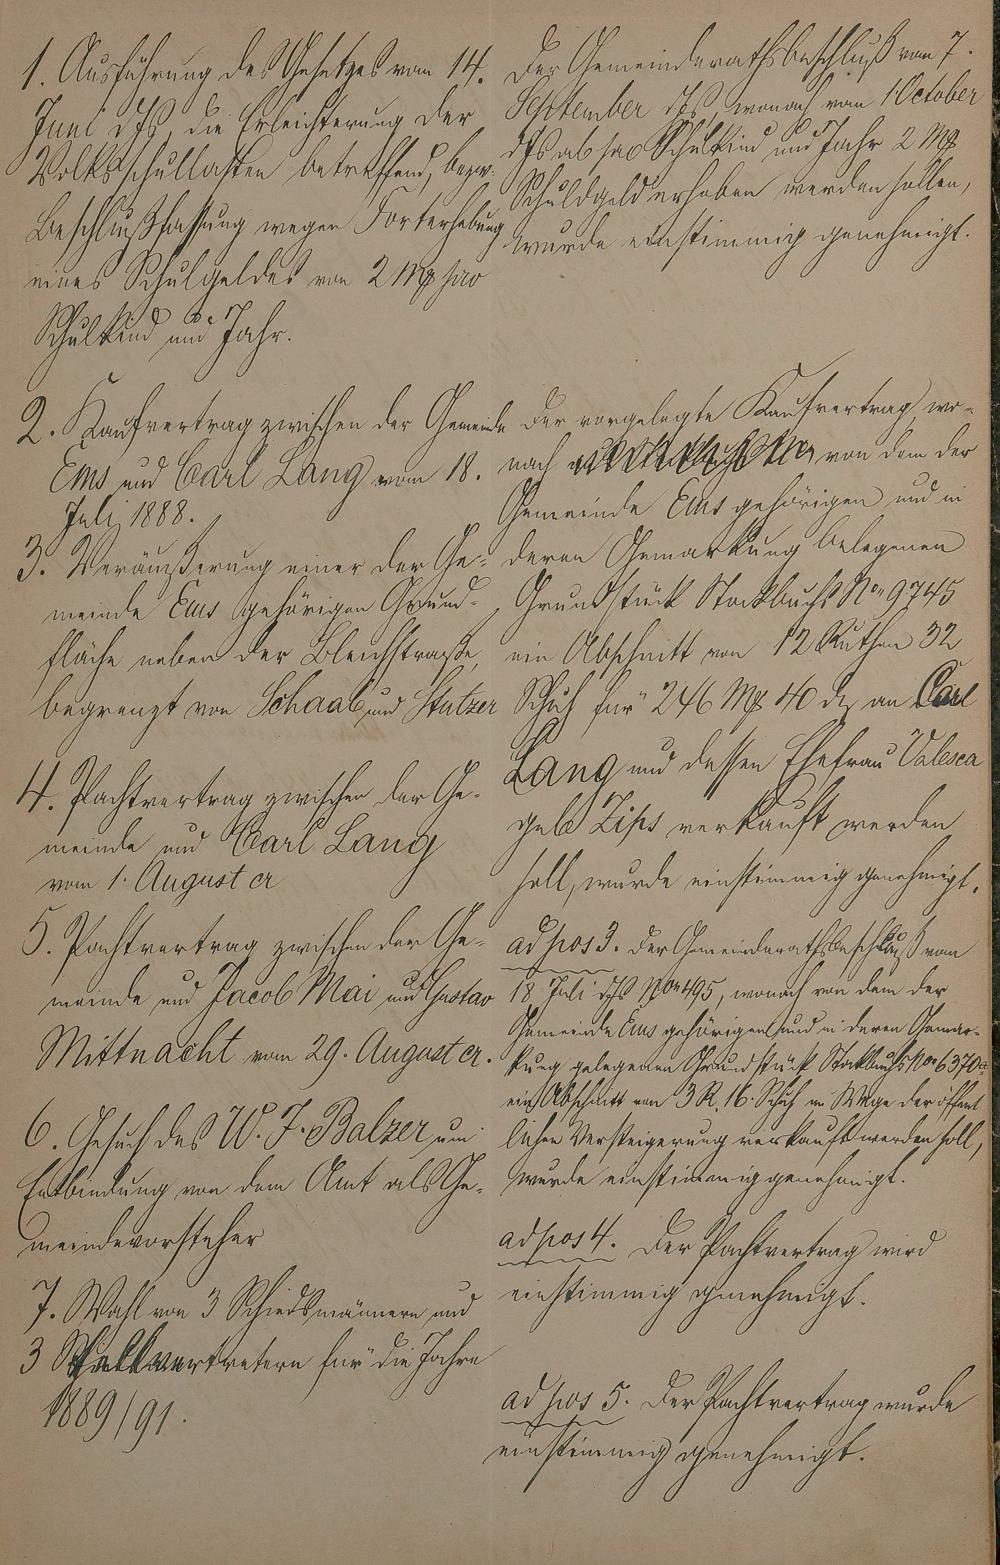 1. Ausführung des Gesetzes vom 14.
Juni djs, die Erleichterung der
Volksschullasten betreffend, bezw.
Beschlußfassung wegen Forterhebung
eines Schulgeldes von 2 Mk pro
Schulkind und Jahr.
2. Kaufvertrag zwischen der Gemeinde
Ems und Carl Lang vom 18.
Juli 1888.
3. Veräußerung einer der Ge-
meinde Ems gehörigen Grund-
fläche neben der Bleichstraße,
begrenzt von Schaab und Stutzer
4. Pachtvertrag zwischen der Ge-
meinde und Carl Lang
vom 1. August cr
5. Pachtvertrag zwischen der Ge-
meinde und Jacob Mai und Gustav
Mittnacht vom 29. August cr.
6. Gesuch des W. J. Balzer um
Entbindung von dem Amt als Ge-
meindevorsteher
7. Wahl von 3 Schiedsmännern und
3 Stellvertretern für die Jahre
1889/91.
Der Gemeinderathsbeschluß vom 7.
September djs, wonach vom 1 October
djs ab pro Schulkind und Jahr 2 Mk
Schuldgeld erhoben werden sollen,
wurde einstimmig genehmigt.
Der vorgelegte Kaufvertrag, wo-
nach von dem der
Gemeinde Ems gehörigen und in
deren Gemarkung belegenen
Grundstück Stockbuchs No 9745
ein Abschnitt von 12 Ruthen 32
Schuh für 246 Mk 40 d an Carl
Lang und dessen Ehefrau Valesca
geb Zips verkauft werden
soll, wurde einstimmig genehmigt.
ad pos 3. Der Gemeinderathsbeschluß vom
18 Juli djs No 495, wonach von dem der
Gemeinde Ems gehörigen und in deren Gemar-
kung gelegenen Grundstück Stockbuchs No 6370a
ein Abschnitt von 3 R. 16. Schuh im Wege der öffent
lichen Versteigerung verkauft werden soll,
wurde einstimmig genehmigt.
ad pos 4. Der Pachtvertrag wird
einstimmig genehmigt.
ad pos 5. Der Pachtvertrag wurde
einstimmig genehmigt.